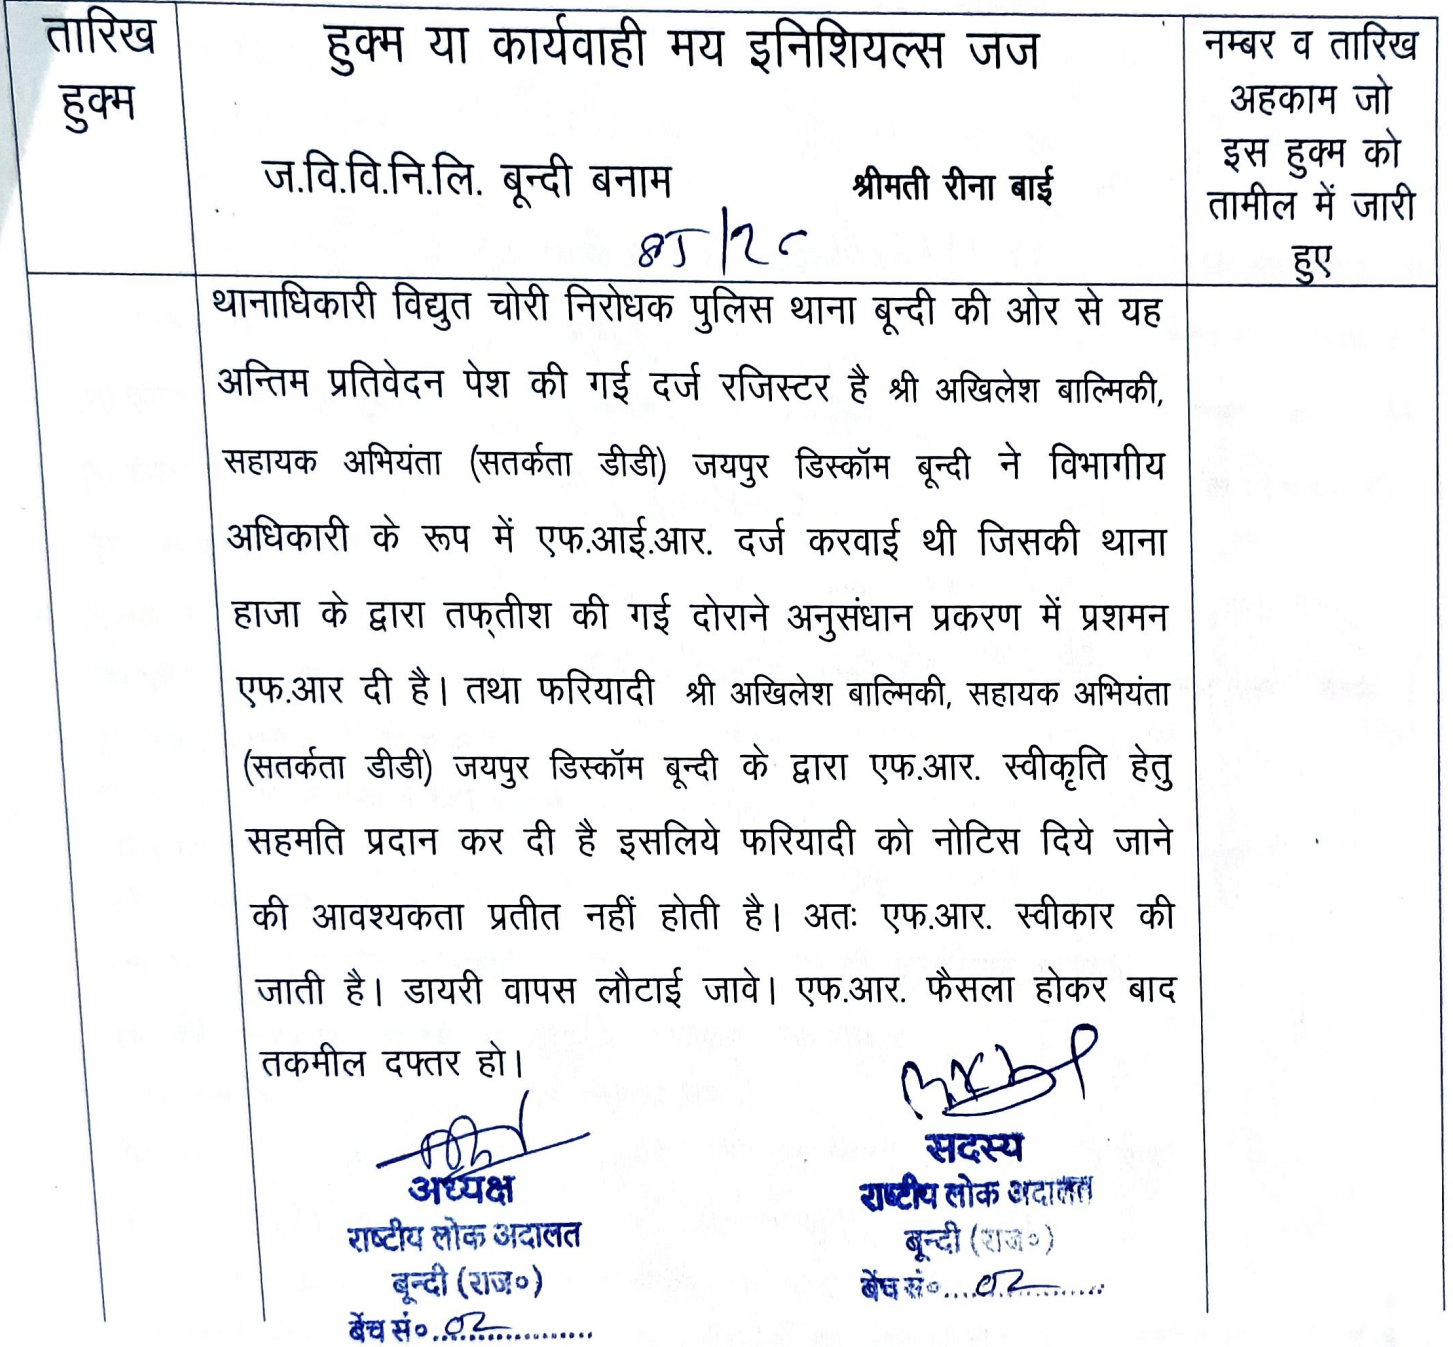 तारिख
हुक्म
हुक्म या कार्यवाही मय इनिशियल्स जज
नम्बर व तारिख
अहकाम जो
इस हुक्म को
तामील में जारी
हुए
ज.वि.वि.नि.लि. बून्दी बनाम श्रीमती रीना बाई
थानाधिकारी विद्युत चोरी निरोधक पुलिस थाना बून्दी की ओर से यह
अन्तिम प्रतिवेदन पेश की गई दर्ज रजिस्टर है श्री अखिलेश बाल्मिकी,
सहायक अभियंता (सतर्कता डीडी) जयपुर डिस्कॉम बून्दी ने विभागीय
अधिकारी के रूप में एफ.आई.आर. दर्ज करवाई थी जिसकी थाना
हाजा के द्वारा तफ्तीश की गई दोराने अनुसंधान प्रकरण में प्रशमन
एफ.आर दी है। तथा फरियादी श्री अखिलेश बाल्मिकी, सहायक अभियंता
(सतर्कता डीडी) जयपुर डिस्कॉम बून्दी के द्वारा एफ.आर. स्वीकृति हेतु
सहमति प्रदान कर दी है इसलिये फरियादी को नोटिस दिये जाने
की आवश्यकता प्रतीत नहीं होती है। अतः एफ.आर. स्वीकार की
जाती है। डायरी वापस लौटाई जावे। एफ.आर. फैसला होकर बाद
तकमील दफ्तर हो।
अध्यक्ष
राष्टीय लोक अदालत
बून्दी (राज०)
बेंच सं० 02
सदस्य
राष्टीय लोक अदालत
बून्दी (राज०)
बेंच सं० 02